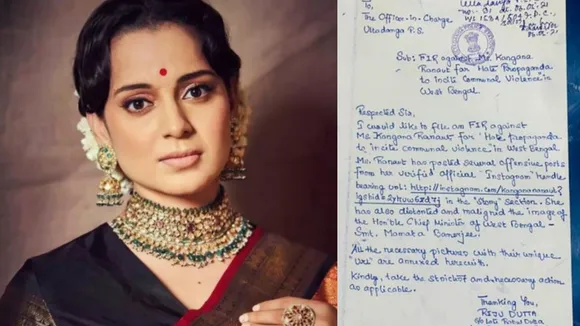 To,
The Officer-in-Charge
Ultadanga P.S.
Sub: FIR against Ms. Kangana
Ranaut for Hate Propaganda
to incite Communal Violence in
West Bengal
Respected Sir,
I would like to file an FIR against
Ms. Kangana Ranaut for 'Hate propaganda
to incite communal violence' in West Bengal
Ms. Ranaut has posted several offensive posts
from her verified official "Instagram" handle
in the "story" section. She
has also distorted and maligned the image
of the Hon'ble Chief Minister of West Bengal -
Smt. Mamata Banerjee.
All the necessary pictures with their unique
"URL" are annexed herewith.
Kindly, take the strictest and necessary action
as applicable.
Thanking You,
RIJU DUTTA